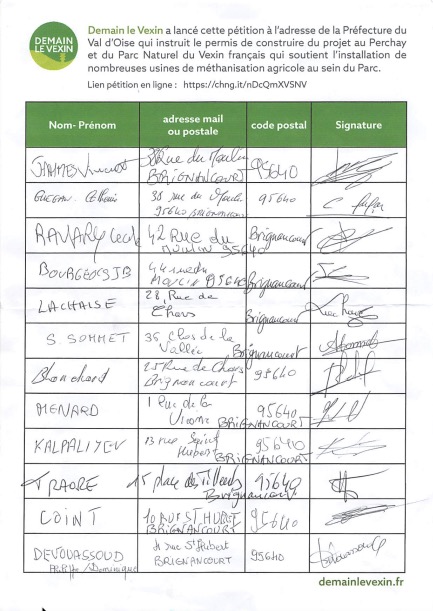 DEMAIN
LE VEXIN
Demain le Vexin a lancé cette pétition à l'adresse de la Préfecture du
Val d'Oise qui instruit le permis de construire du projet au Perchay
et du Parc Naturel du Vexin français qui soutient l'installation de
nombreuses usines de méthanisation agricole au sein du Parc.
Lien pétition en ligne : https://chng.it/nDcQmXVSNV
Nom- Prénom
adresse mail
ou postale
code postal
Signature
JAMMES Vincent
Rue du Moulin
BRIGNANCOURT
95640
38 rue du Moulin
95640 BRIGNANCOURT
95640
RAVARY Cecile
42 Rue du
Moulin 95640
Brignancourt
BOURGEOIS JB
44 rue du
Moulin 95640
Brignancourt
LACHAISE
28, Rue de
Chars
Brignancourt
S. SOMMET
35, Clos de la
Vallée
Brignancourt
Blanchard
25 Rue de Chars
Brignancourt
95640
MENARD
1 Rue de la
Viosne
BRIGNANCOURT
95640
KALPALIJEV
13 rue Saint
Hubert
BRIGNANCOURT
95640
TRAORE
15 place des Tilleuls
Brignancourt
95640
COINT
10 RUE ST HUBERT
BRIGNANCOURT
95640
DEVOUASSOUD
Philippe / Dominique
rue St Hubert
BRIGNANCOURT
95640
demainlevexin.fr